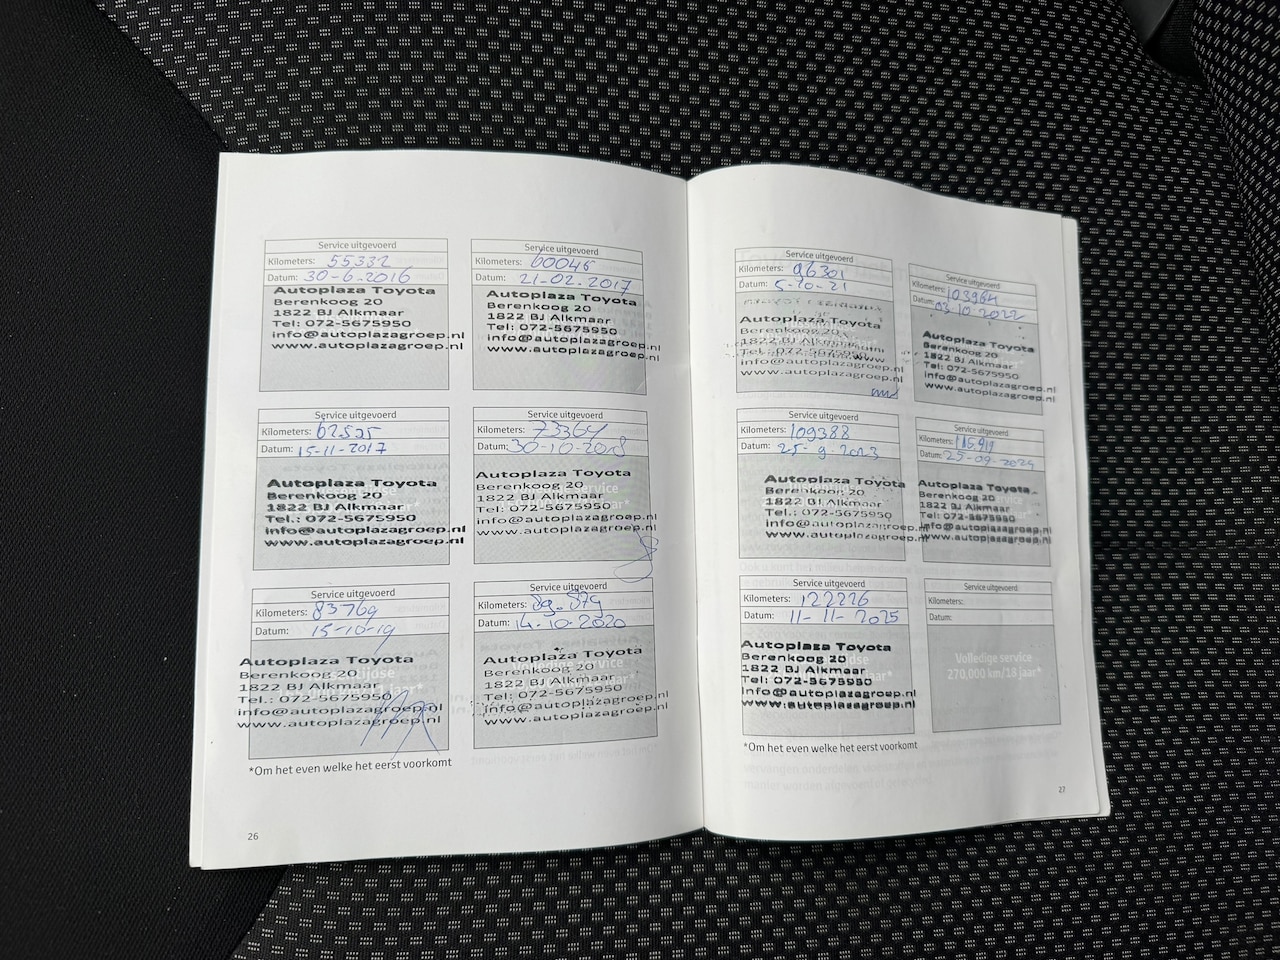 Service uitgevoerd
Kilometers: 55332
Datum: 30-6-2016
Autoplaza Toyota
Berenkoog 20
1822 BJ Alkmaar
Tel: 072-5675950
info@autoplazagroep.nl
www.autoplazagroep.nl
Service uitgevoerd
Kilometers: 60046
Datum: 21-02-2017
Autoplaza Toyota
Berenkoog 20
1822 BJ Alkmaar
Tel: 072-5675950
info@autoplazagroep.nl
www.autoplazagroep.nl
Service uitgevoerd
Kilometers: 62525
Datum: 15-11-2017
Autoplaza Toyota
Berenkoog 20
1822 BJ Alkmaar
Tel.: 072-5675950
info@autoplazagroep.nl
www.autoplazagroep.nl
Service uitgevoerd
Kilometers: 73364
Datum: 30-10-2018
Autoplaza Toyota
Berenkoog 20
1822 BJ Alkmaar
Tel.: 072-5675950
info@autoplazagroep.nl
www.autoplazagroep.nl
Service uitgevoerd
Kilometers: 83769
Datum: 15-10-19
Autoplaza Toyota
Berenkoog 20
1822 BJ Alkmaar
Tel.: 072-5675950
info@autoplazagroep.nl
www.autoplazagroep.nl
Service uitgevoerd
Kilometers: 89.879
Datum: 14-10-2020
Volledige service
Autoplaza Toyota
Berenkoog 20
1822 BJ Alkmaar
Tel.: 072-5675950
info@autoplazagroep.nl
www.autoplazagroep.nl
*Om het even welke het eerst voorkomt
26
Service uitgevoerd
Kilometers: 96301
Datum: 5-10-21
Autoplaza Toyota
Berenkoog 20
1822 BJ Alkmaar
Tel.: 072-5675950
info@autoplazagroep.nl
www.autoplazagroep.nl
Service uitgevoerd
Kilometers: 103964
Datum: 03-10-2022
Autoplaza Toyota
Berenkoog 20
1822 BJ Alkmaar
Tel: 072-5675950
info@autoplazagroep.nl
www.autoplazagroep.nl
Service uitgevoerd
Kilometers: 109388
Datum: 25-9-2023
Autoplaza Toyota
Berenkoog 20
1822 BJ Alkmaar
Tel.: 072-5675950
info@autoplazagroep.nl
www.autoplazagroep.nl
Service uitgevoerd
Kilometers: 115.919
Datum: 25-09-2024
Autoplaza Toyota
Berenkoog 20
1822 BJ Alkmaar
Tel.: 072-5675950
info@autoplazagroep.nl
www.autoplazagroep.nl
Service uitgevoerd
Kilometers: 122226
Datum: 11-11-2025
Autoplaza Toyota
Berenkoog 20
1822 BJ Alkmaar
Tel.: 072-5675950
info@autoplazagroep.nl
www.autoplazagroep.nl
Service uitgevoerd
Kilometers:
Datum:
Volledige service
270,000 km/18 jaar*
*Om het even welke het eerst voorkomt
27